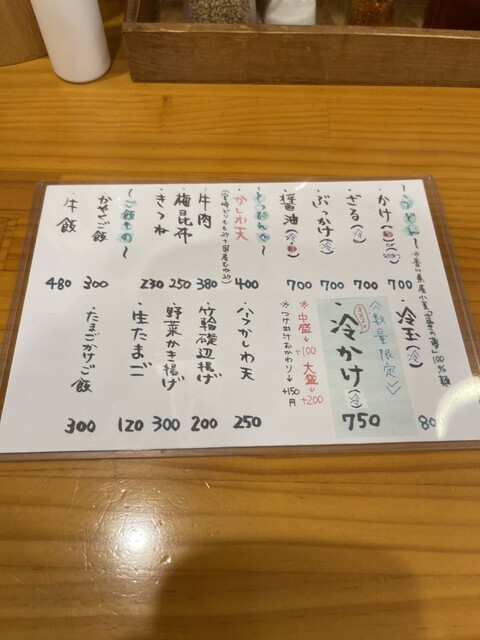 〜うどん〜 ※香川県産小麦「さぬきの夢」100%麺
・かけ(温)(冷) 700
・ざる(冷) 700
・ぶっかけ(冷) 700
・醤油(冷・温) 700
・冷玉(冷) 80
数量限定
・冷かけ(冷) 750
※中盛→+100 大盛→+200
※つけ出汁おかわり→+150円
〜とっぴんぐ〜
・かしわ天 400
・牛肉 380
・梅昆布 250
・きつね 230
・ハーフかしわ天 250
・竹輪磯辺揚げ 200
・野菜かき揚げ 300
・生たまご 120
〜ご飯もの〜
・かやくご飯 300
・牛飯 480
・たまごかけご飯 300